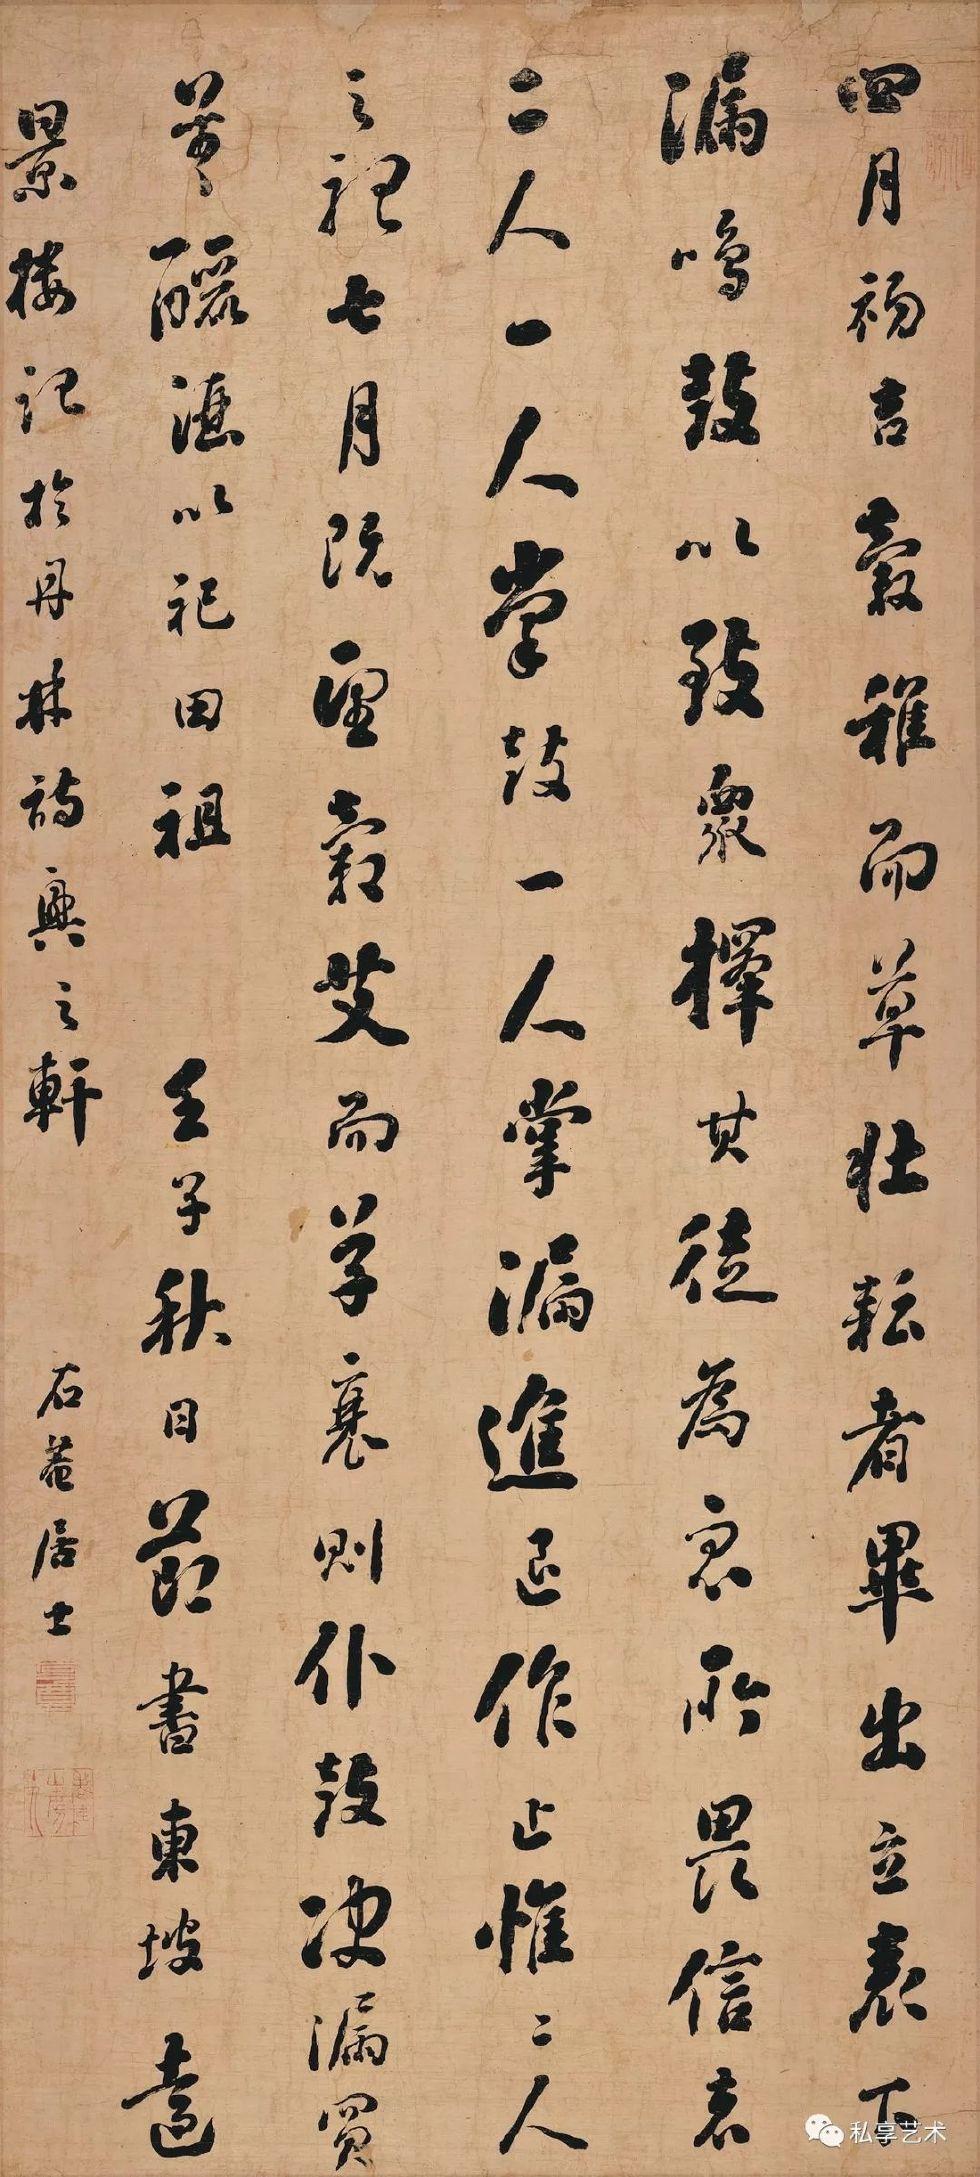 四月初吉穀稚而草壯耘者畢出立表下
漏鳴鼓以致眾擇其徒為眾所畏信者
二人一人掌鼓一人掌漏進退作止惟二人
之聽七月既望穀艾而草衰則仆鼓決漏買
羊釃酒以祀田祖 壬子秋日節書東坡遠
景樓記於丹林詩興之軒 石菴居士
私享艺术